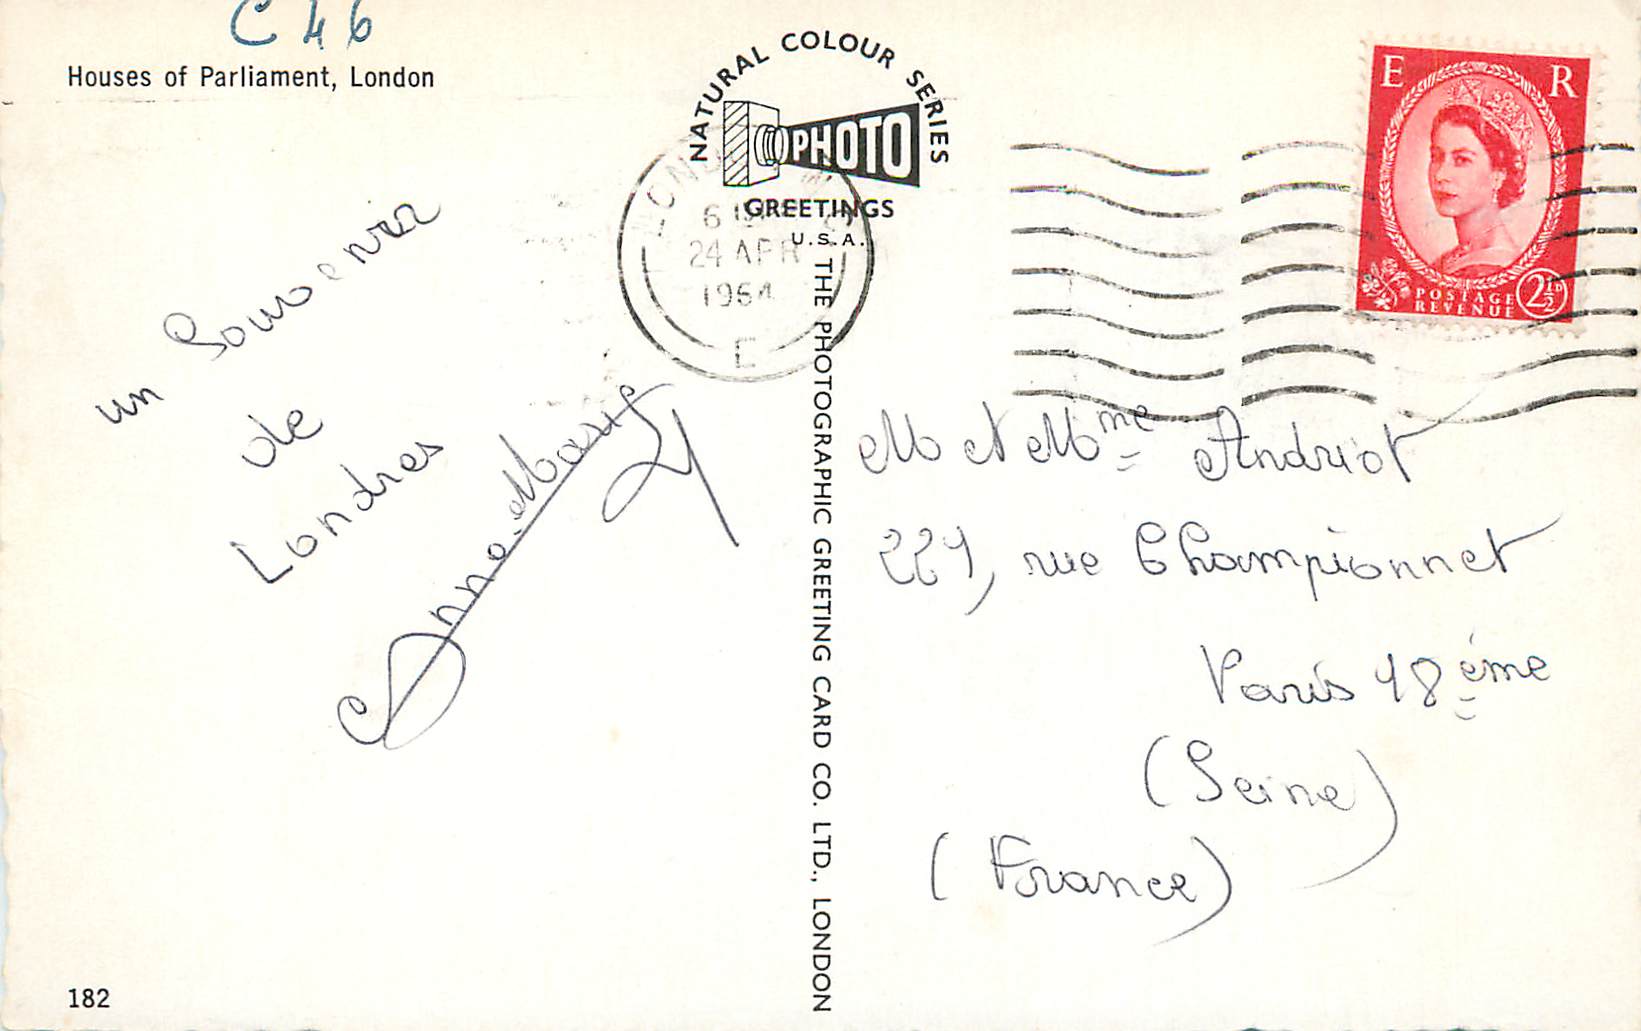 C 46
Houses of Parliament, London
NATURAL COLOUR SERIES
PHOTO
GREETINGS
U.S.A.
THE PHOTOGRAPHIC GREETING CARD CO. LTD., LONDON
24 APR
E
E R
POSTAGE
REVENUE
2½D
un Souvenir
de
Londres
Anne-Marie
M et Mme Andriot
221, rue Championnet
Paris 18ème
(Seine)
(France)
182